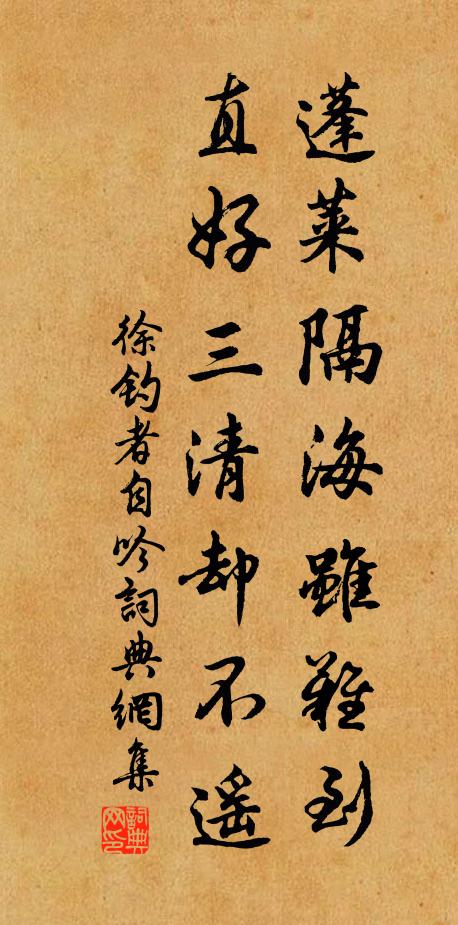 蓬萊隔海雖難到
直好三清却不遥
徐钓者自吟詞典網集
詞典网印